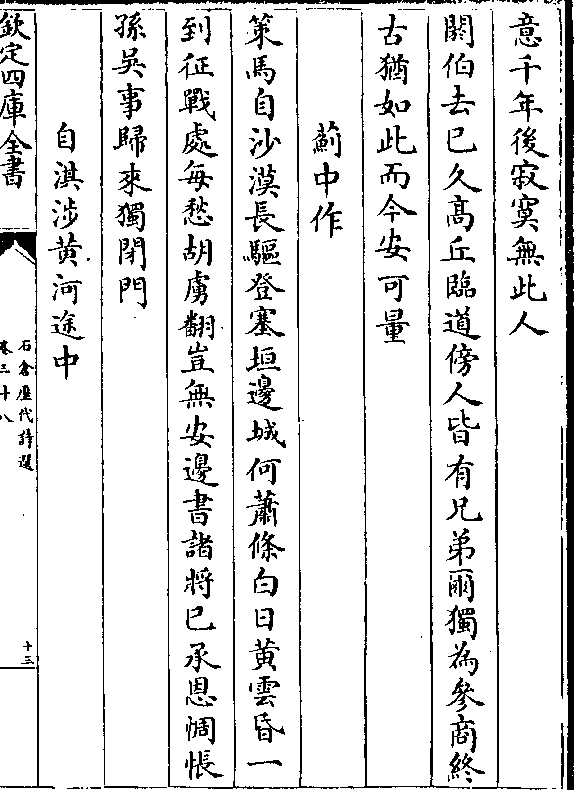 意千年後寂寞無此人
閼伯去已久高丘臨道傍人皆有兄弟爾獨為參商終
古猶如此而今安可量
薊中作
策馬自沙漠長驅登塞垣邊城何蕭條白日黄雲昏一
到征戰處每愁胡虜翻豈無安邊書諸將已承恩惆悵
孫吳事歸來獨閉門
自淇涉黄河途中
欽定四庫全書
石倉歷代詩選
卷三十八
十三